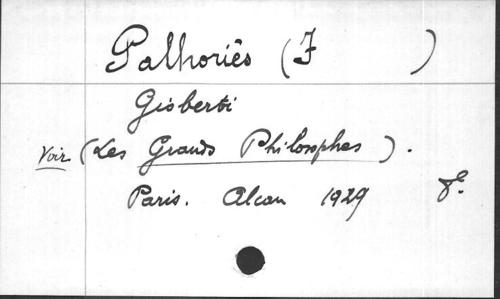 Palhoriès (F )
Gioberti
Voir (Les Grands Philosophes).
Paris. Alcan 1929 8º.